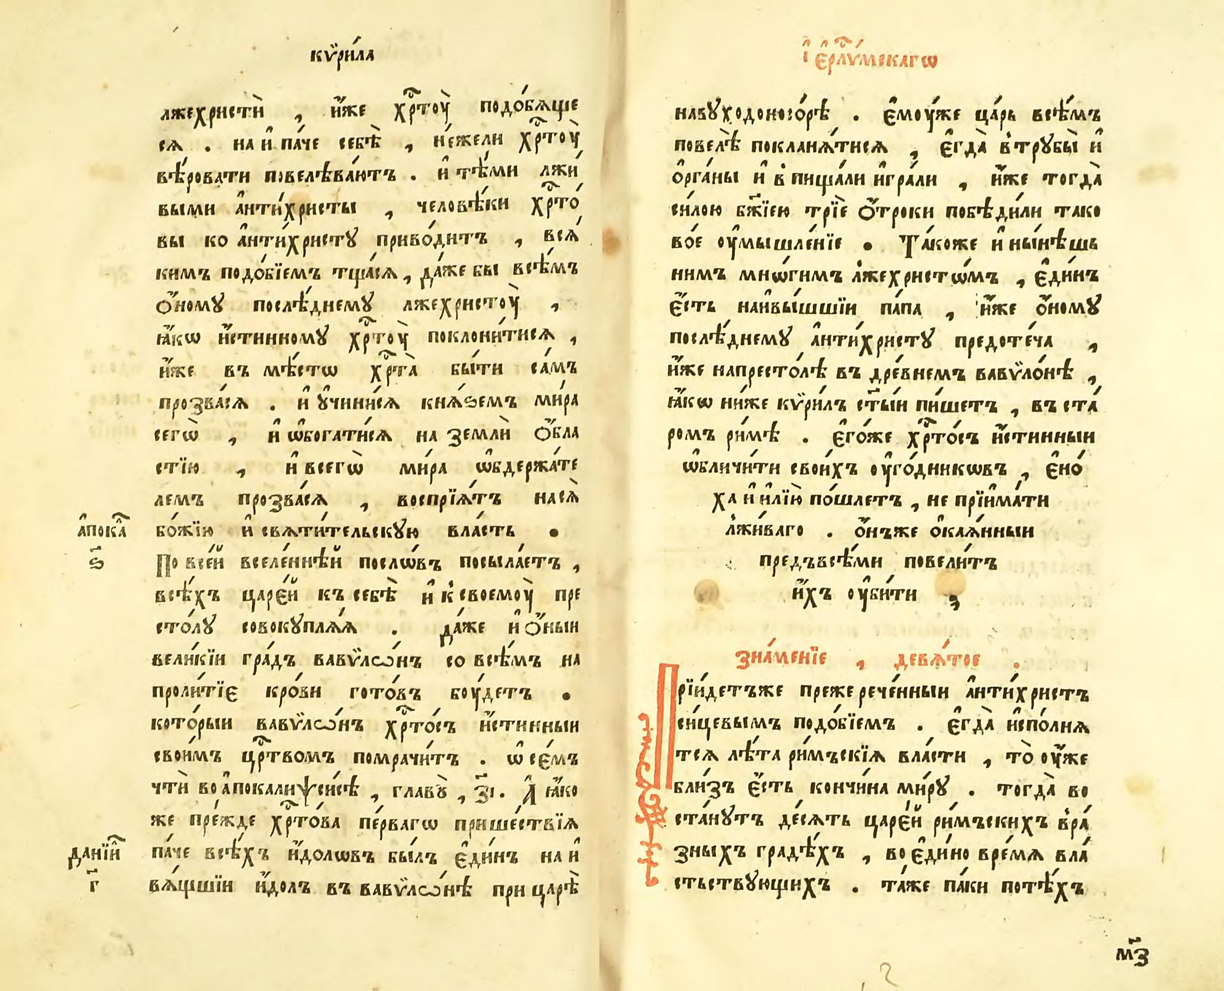 кѷри́ла
лжехристѝ , и҆́же хрⷭ҇тоу̀ подо́бѧщіе
сѧ . на и҆ па́че себѣ̀ , не́жели хрⷭ҇тоу̀
вѣ́ровати повелѣва́ютъ . и҆ тѣ́ми лжи́
выми а҆нти́христы , человѣ́ки хрⷭ҇то́
вы ко а҆нти́христꙋ приво́дитъ , всѧ́
кимъ подо́бїемъ тща́сѧ , да́же бы всѣ́мъ
ѻ҆́номꙋ послѣ́днемꙋ лжехристоу̀ ,
ꙗ҆́кѡ и҆́стинномꙋ хрⷭ҇тоу̀ поклони́тисѧ ,
и҆́же въ мѣ́стѡ хрⷭ҇та̀ бы́ти са́мъ
прозва́сѧ . и҆ ᲂу҆чини́сѧ кнѧ́ѕемъ ми́ра
сегѡ̀ , и҆ ѡ҆богати́сѧ на землѝ ѻ҆́бла
стїю , и҆ всегѡ̀ ми́ра ѡ҆бдержа́те
лемъ прозва́сѧ , воспрїѧ́тъ на сѧ̀
бо́жїю и҆ свѧти́тельскꙋю вла́сть .
а҆пока́ⷧ
ѕ҃
По все́й вселе́ннѣй послѡ́въ посыла́етъ ,
всѣ́хъ царе́й къ себѣ̀ и҆ к своемоу̀ пре
сто́лꙋ совокꙋплѧ́ѧ . да́же и҆ ѻ҆́ныи
вели́кїи гра́дъ вавѷлѡ́нъ со всѣ́мъ на
проли́тїе кро́ви гото́въ боу́детъ .
кото́рыи вавѷлѡ́нъ хрⷭ҇то́съ и҆́стинныи
свои́мъ црⷭ҇твомъ помрачи́тъ . ѡ҆ се́мъ
чтѝ во а҆покали́ѱисѣ , главꙋ̀ , з҃і . А҆ ꙗ҆́ко
же пре́жде хрⷭ҇то́ва пе́рвагѡ прише́ствїѧ
па́че всѣ́хъ и҆́долѡвъ бы́лъ є҆ди́нъ на и҆
дані́иⷧ
г҃
вѧ́щшїи и҆́долъ въ вавѷлѡ́нѣ при царѣ̀
і҆ є҆рⷭ҇лѵ́мскагѡ
навꙋходоносо́рѣ . є҆мꙋ́же ца́рь всѣ́мъ
повелѣ̀ покланѧ́тисѧ , є҆гда̀ в трꙋбы̀ и҆
о҆рга́ны и҆ в пища́ли и҆гра́ли , и҆́же тогда̀
си́лою бж҃їею трїѐ ѻ҆́троки побѣди́ли тако
во́е ᲂу҆мышле́нїе . Та́коже и҆ ны́нѣшь
нимъ мнѡ́гимъ лжехристѡ́мъ , є҆ди́нъ
є҆́сть наивы́шшїи па́па , и҆́же ѻ҆́номꙋ
послѣ́днемꙋ а҆нти́христꙋ предоте́ча ,
и҆́же на престо́лѣ въ дре́внемъ вавѷло́нѣ ,
ꙗ҆́кѡ ни́же кѷри́лъ ст҃ы́и пи́шетъ , въ ста́
ромъ ри́мѣ . є҆го́же хрⷭ҇то́съ и҆́стинныи
ѡ҆бличи́ти свои́хъ ᲂу҆го́дникѡвъ , є҆но́
ха и҆ и҆лїю̀ по́шлетъ , не прїима́ти
лжи́ваго . ѻ҆́нъже о҆каѧ́нныи
предъ всѣ́ми повели́тъ
и҆́хъ ᲂу҆би́ти ,
зна́менїе , девѧ́тое .
Прїи́детъ же преже рече́нныи а҆нти́христъ
си́цевымъ подо́бїемъ . є҆гда̀ и҆спо́лнѧ
тсѧ лѣ́та ри́мъскїѧ вла́сти , то̀ ᲂу҆́же
бли́зъ є҆́сть кончи́на ми́рꙋ . тогда̀ во
ста́нꙋтъ де́сѧть царе́й ри́мъскихъ в ра́
зныхъ градѣ́хъ , во є҆ди́но вре́мѧ вла́
стьствꙋющихъ . та́же па́ки по тѣ́хъ
м҃з